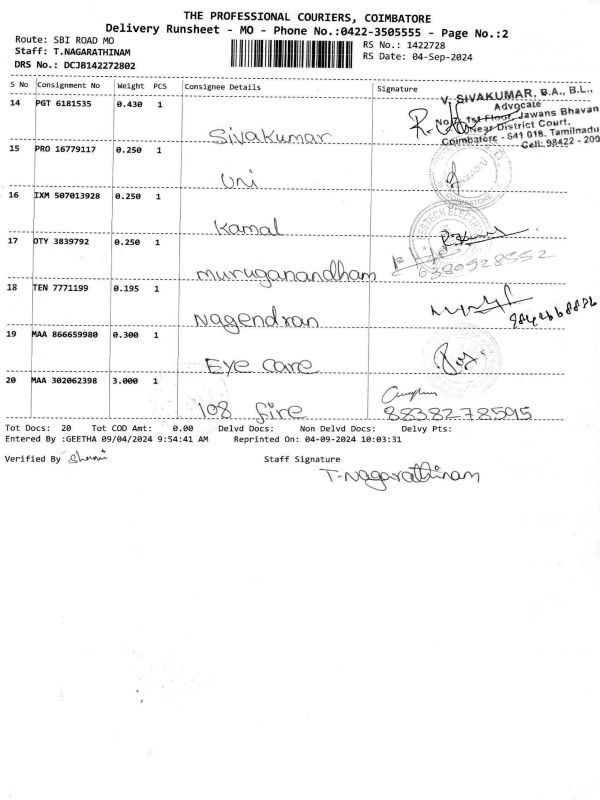 THE PROFESSIONAL COURIERS, COIMBATORE
Delivery Runsheet - MO - Phone No.:0422-3505555 - Page No.:2
Route: SBI ROAD MO
RS No.: 1422728
Staff: T.NAGARATHINAM
RS Date: 04-Sep-2024
DRS No.: DCJB142272802
S No Consignment No Weight PCS Consignee Details Signature
V. SIVAKUMAR, B.A., B.L.,
Advocate
1st Floor, Jawans Bhavan
Near District Court,
Coimbatore - 641 018. Tamilnadu
Cell: 98422 - 200
14 PGT 6181535 0.430 1
Sivakumar
15 PRO 16779117 0.250 1
Uni
COIMBATORE
16 IXM 507013928 0.250 1
Kamal
17 DTY 3839792 0.250 1
muruganandham
6380928552
18 TEN 7771199 0.195 1
Nagendran
19 MAA 866659980 0.300 1
Eye care
20 MAA 302062398 3.000 1
108 fire
88382785915
Tot Docs: 20 Tot COD Amt: 0.00 Delvd Docs: Non Delvd Docs: Delvy Pts:
Entered By :GEETHA 09/04/2024 9:54:41 AM Reprinted On: 04-09-2024 10:03:31
Verified By
Staff Signature
T.Nagarathinam